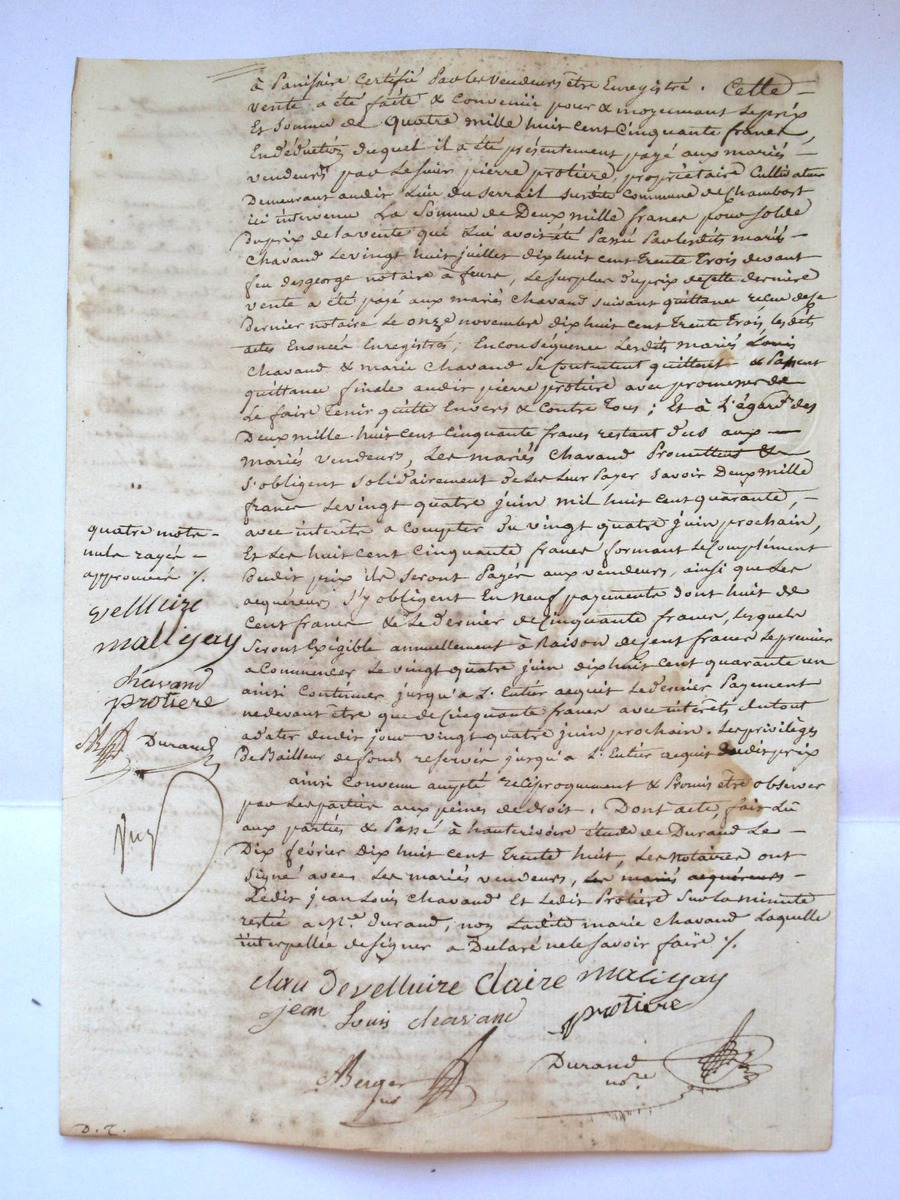 à Panissière Certifié Par les vendeurs être Enregistré. Cette
vente a été faite & convenüe pour & moyennant le prix
Et Somme de Quatre mille huit cent Cinquante francs,
En déduction duquel il a été présentement payé aux mariés
vendeurs par le sieur pierre protière, propriétaire Cultivateur
Demeurant audit Lieu du serrail susdite commune de Chambost
ici intervenu La Somme de Deux mille francs pour solde
Du prix de la vente qui Lui avoit été Passé Par lesdits mariés
Chavand Le vingt huit juillet dix huit cent Trente Trois devant
feu desgeorge notaire à feurs, Le surplus du prix de cette dernière
vente a été payé aux mariés Chavand suivant quittance reçue de ce
Dernier notaire Le onze novembre dix huit cent Trente Trois, lesdits
actes Enoncés Enregistrés; En conséquence Lesdits mariés Louis
Chavand & marie Chavand Se Contentent quittent & Passent
quittance finale audit pierre protière avec promesse de
Le faire Tenir quitte Envers & Contre Tous; Et à L'égard des
Deux mille huit cent Cinquante francs restant dus aux
mariés vendeurs, Les mariés Chavand Promettent &
S'obligent Solidairement de Les Leur Payer Savoir Deux mille
francs Le vingt quatre juin mil huit cent quarante,
avec intérêts à Compter du vingt quatre juin prochain,
Et Les huit cent Cinquante francs formant le Complément
Dudit prix ils Seront Payés aux vendeurs, ainsi que Les
acquéreurs S'y obligent En neuf payements dont huit de
Cent francs & Le Dernier de Cinquante francs, Lesquels
Seront Exigible annuellement à Raison de Cent francs Le premier
a Commencer Le vingt quatre juin dix huit Cent quarante un
ainsi Continuer jusqu'à L'Entier acquit Le dernier Payement
ne devant être que de Cinquante francs avec intérêts du tout
à dater dudit jour vingt quatre juin prochain. Les privilèges
De Bailleur de fonds reservés jusqu'à L'Entier acquit dudit prix
ainsi Convenu accepté réciproquement & Promis être observer
par Les parties aux peines de droit. Dont acte, fait Lu
aux parties & Passé à hauterivoire étude de Durand Le
Dix février dix huit cent Trente huit, Les notaires ont
Signé avec Les mariés vendeurs, les mariés acquéreurs
Ledit jean Louis Chavand Et Ledit Protière Sur La minute
restée a Me. Durand, non Ladite marie Chavand Laquelle
interpellée de signer a Déclaré ne le Savoir faire ./.
clau Develluire Claire maligay
jean Louis chavand protiere
Berger Durand
nore
quatre mots
nuls rayés
approuvés ./.
velluire
maligay
chavand
protiere
Durand
D. T.